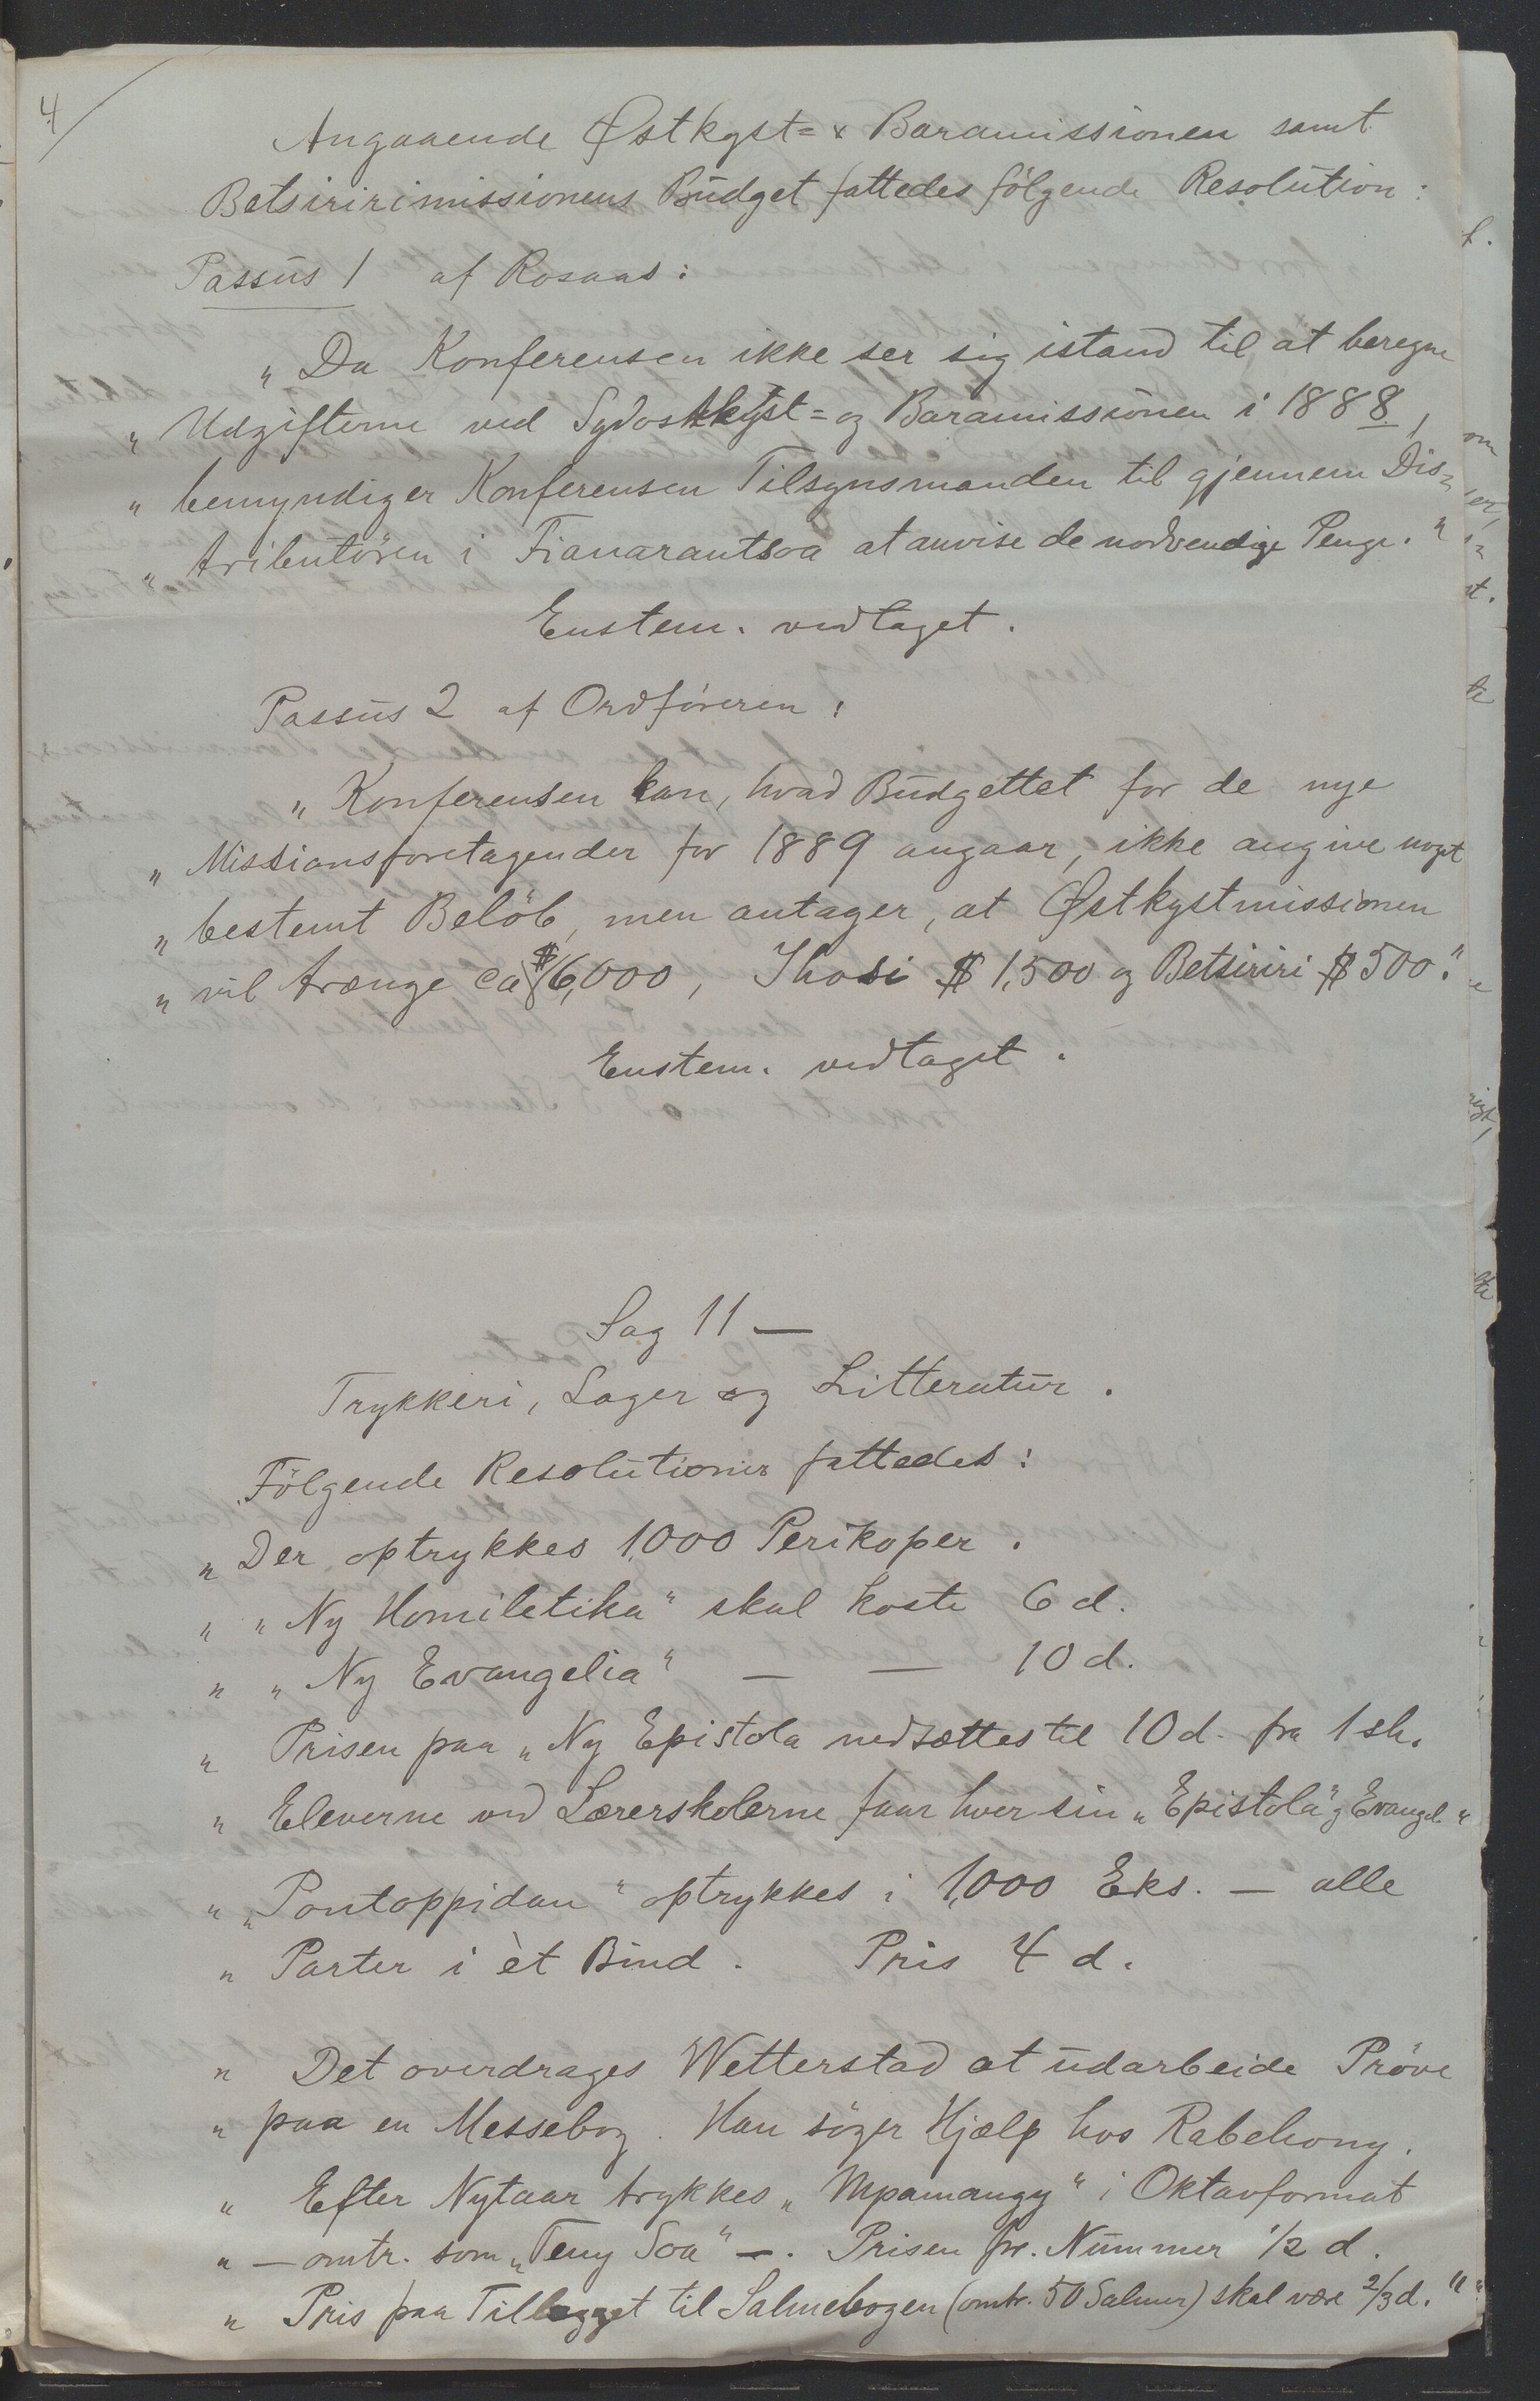 4/
Angaaende Østkyst= & Baramissionen samt
Betsiririmissionens Budget fattedes følgende Resolution:
Passus 1 af Rosaas:
„ Da Konferensen ikke ser sig istand til at beregne
„ Udgifterne ved Sydostkyst= og Baramissionen i 1888,
„ bemyndiger Konferensen Tilsynsmanden til gjennem Dis=
„ tributören i Fianarantsoa at anvise de nødvendige Penge."
Enstem. vedtaget.
Passus 2 af Ordföreren:
„ Konferensen kan, hvad Budgettet for de nye
„ Missionsforetagender for 1889 angaar, ikke angive noget
„ bestemt Belöb, men antager, at Østkystmissionen
„ vil trænge ca $ 6,000, Ihosi $ 1,500 og Betsiriri $ 500."
Enstem. vedtaget.
Sag 11 —
Trykkeri, Lager og Litteratur.
Fölgende Resolutioner fattedes:
„ Der optrykkes 1,000 Perikoper.
„ „ Ny Homiletika" skal koste 6 d.
„ „ Ny Evangelia" — — 10 d.
„ Prisen paa „ Ny Epistola nedsættes til 10 d. fra 1 sh.
„ Eleverne ved Lærerskolerne faar hver sin „ Epistola" & Evangel. "
„ „ Pontoppidan" optrykkes i 1,000 Eks. — alle
„ Parter i èt Bind. Pris 4 d.
„ Det overdrages Wetterstad at udarbeide Pröve
„ paa en Messebog. Han söger Hjælp hos Rabehony.
„ Efter Nytaar trykkes „ Mpamangy" i Oktavformat
„ — omtr. som „ Teny Soa" —. Prisen pr. Nummer 1/2 d.
„ Pris paa Tillægget til Salmebogen (omtr. 50 Salmer) skal være 2/3 d. "